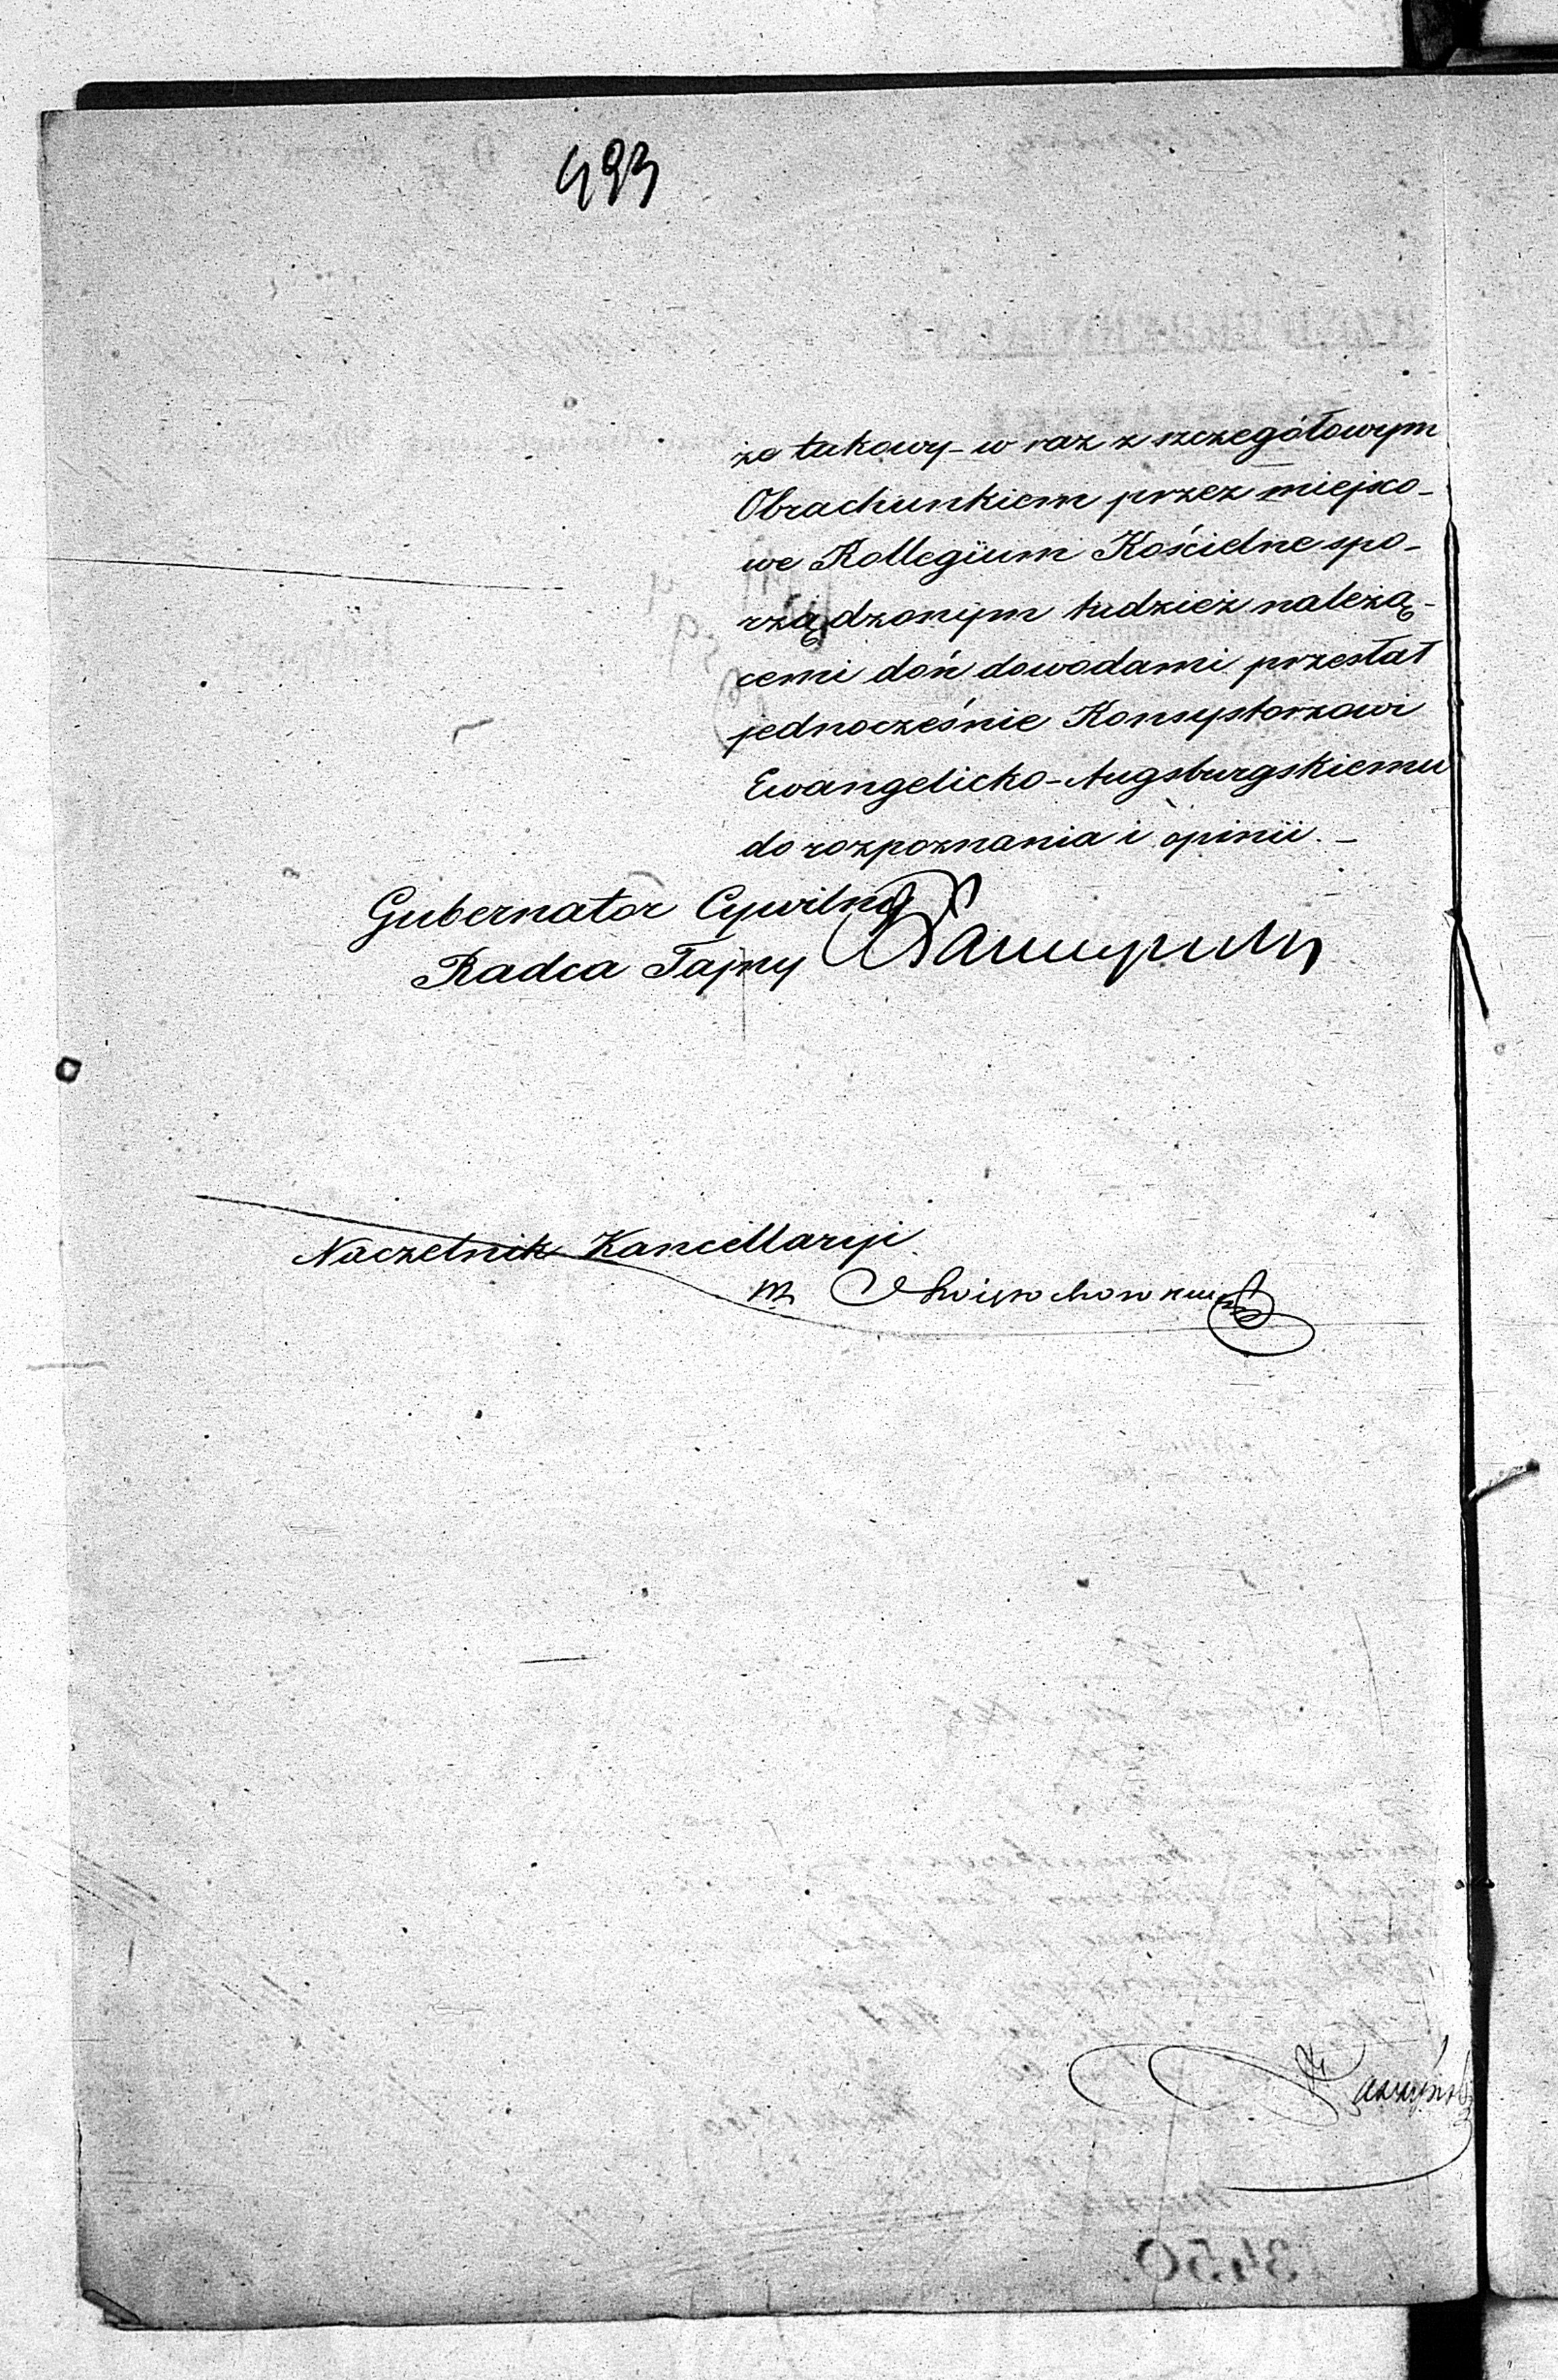 493
że takowy w raz z szczegółowym
Obrachunkiem przez miejsco-
we Kollegium Kościelne spo-
rządzonym tudzież należą-
cemi doń dowodami przesłał
jednocześnie Konsystorzowi
Ewangelicko-Augsburgskiemu
do rozpoznania i opinii. –
Gubernator Cywilny
Radca Tajny
Naczelnik Kancellaryi
3450